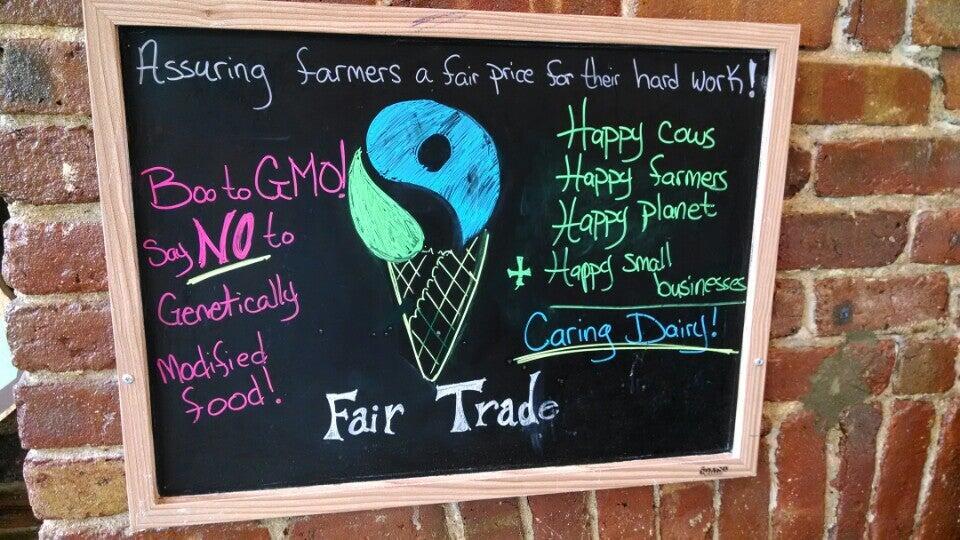 Assuring farmers a fair price for their hard work!
Boo to GMO!
Say NO to
Genetically
Modified
food!
Happy cows
Happy farmers
Happy planet
+ Happy small
businesses
Caring Dairy!
Fair Trade